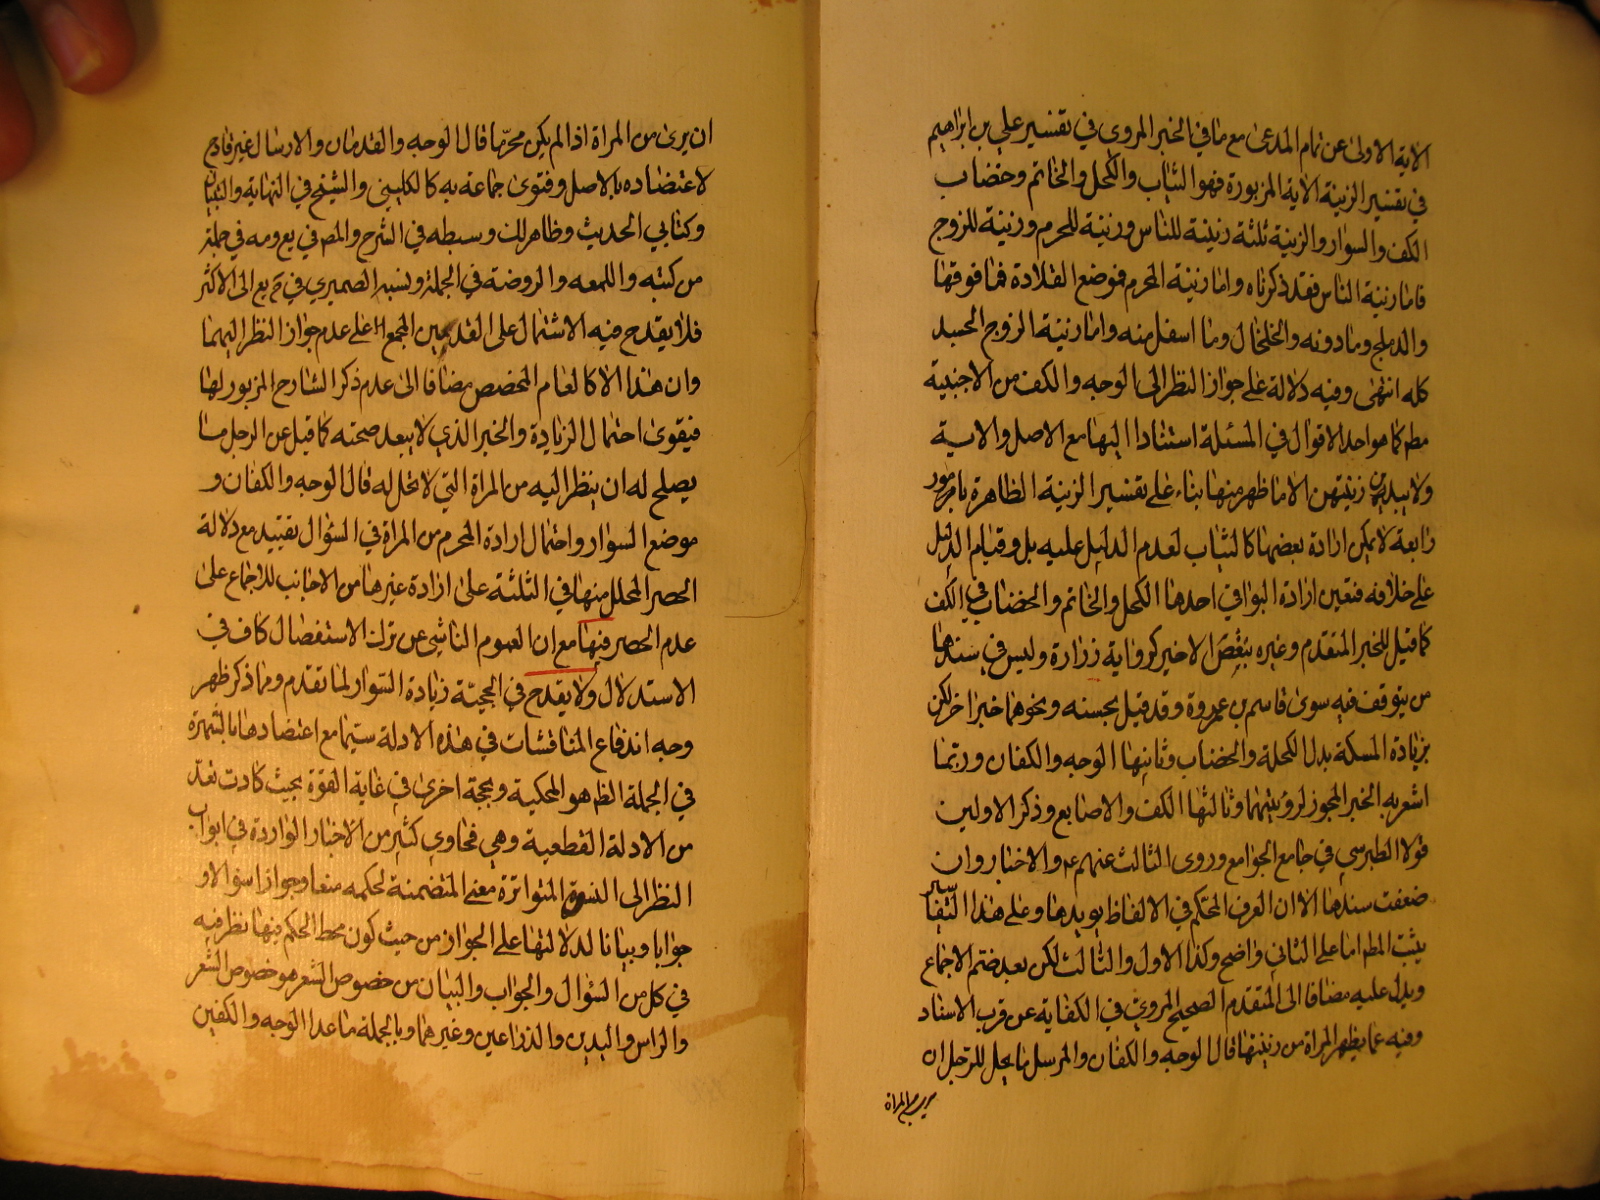 الاية الاولى عن تمام المدعى مع ما في الخبر المروي في تفسير علي بن ابراهيم
في تفسير الزينة الاية المزبورة فهو الثياب والكحل والخاتم وخضاب
الكف والسوار والزينة ثلثة زينة للناس وزينة للمحرم وزينة للزوج
فاما زينة الناس فقد ذكرناه واما زينة المحرم فموضع القلادة فما فوقها
والدملج وما دونه والخلخال وما اسفل منه واما زينة الزوج الجسد
كله انتهى وفيه دلالة على جواز النظر الى الوجه والكف من الاجنبية
مطم كما هو احد الاقوال في المسئلة استنادا اليها مع الاصل والاية
ولا يبدين زينتهن الا ما ظهر منها بناء على تفسير الزينة الظاهرة بامور
رابعة لا يمكن ارادة بعضها كالثياب لعدم الدليل عليه بل وقيام الدليل
على خلافه فتعين ارادة البواقي احدها الكحل والخاتم والخضاب في الكف
كما قيل للخبر المتقدم وغيره بنقص الاخير كرواية زرارة وليس في سندها
من يتوقف فيه سوى قاسم بن عروة وقد قيل بحسنه ونحوهما خبر اخر لكن
بزيادة المسكة بدل الكحلة والخضاب وثانيها الوجه والكفان وربما
اشعر به الخبر المجوز لرؤيتهما وثالثها الكف والاصابع وذكر الاولين
قولا الطبرسي في جامع الجوامع وروى الثالث عنهم ع والاخبار وان
ضعفت سندها الا ان العرف المحكم في الالفاظ يؤيدها وعلى هذا التفاسير
يثبت المطم اما على الثاني واضح وكذا الاول والثالث لكن بعد ضم الاجماع
ويدل عليه مضافا الى المتقدم الصحيح المروي في الكفاية عن قرب الاسناد
وفيه عما يظهر المراة من زينتها قال الوجه والكفان والمرسل ما يحل للرجل ان
يرى من المراة
ان يرى من المراة اذا لم يكن محرما قال الوجه والقدمان والارسال غير قادح
لاعتضاده بالاصل وفتوى جماعة به كالكليني والشيخ في النهاية والتبيان
وكتابي الحديث وظاهر لك وسبطه في الشرح والمص في يع ومه في جملة
من كتبه واللمعه والروضة في الجملة ونسبه الصميري في ح يع الى الاكثر
فلا يقدح فيه الاشتمال على القدمين المجمع على عدم جواز النظر اليهما
وان هذا الا كالعام المخصص مضافا الى عدم ذكر الشارح المزبور لها
فيقوى احتمال الزيادة والخبر الذي لا يبعد صحته كما قيل عن الرجل ما
يصلح له ان ينظر اليه من المراة التي لا تحل له قال الوجه والكفان و
موضع السوار واحتمال ارادة المحرم من المراة في السؤال تقييد مع دلالة
الحصر المحلل منها في الثلثة على ارادة غيرها من الاجانب للاجماع على
عدم الحصر فيها مع ان العموم الناشي عن ترك الاستفصال كاف في
الاستدلال ولا يقدح في الحجية زيادة السوار لما تقدم ومما ذكر ظهر
وجه اندفاع المناقشات في هذه الادلة سيما مع اعتضادها بالشهرة
في الجملة الظاهرة والمحكية وبحجة اخرى في غاية القوة بحيث كادت تعد
من الادلة القطعية وهي فحاوي كثير من الاخبار الواردة في ابواب
النظر الى النسوة المتواترة معنى المتضمنة لحكمه منعا وجوازا سؤالا و
جوابا وبيانا لدلالتها على الجواز من حيث كون محط الحكم فيها نظر فيه
في كل من السؤال والجواب والبيان من خصوص الشعر هو خصوص الشعر
والراس واليدين والذراعين وغيرهما وبالجملة ما عدا الوجه والكفين